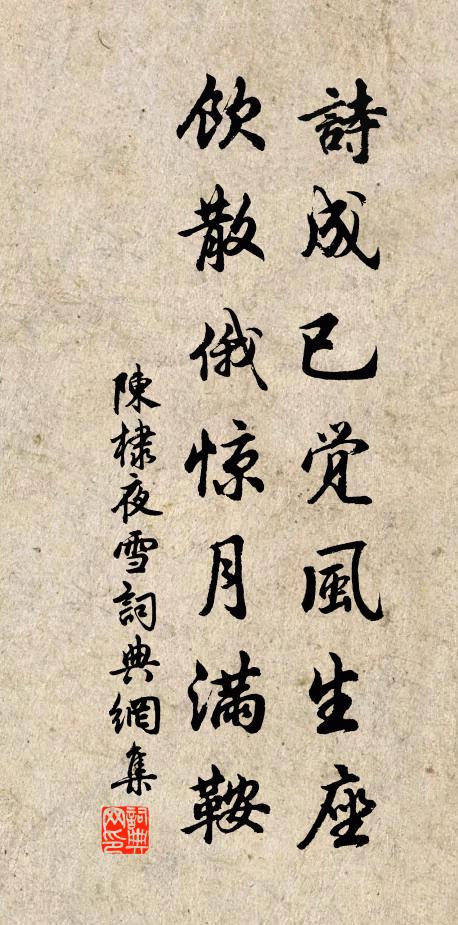 詩成已觉風生座
飲散俄惊月满鞍
陳棣夜雪詞典網集
詞典
网印